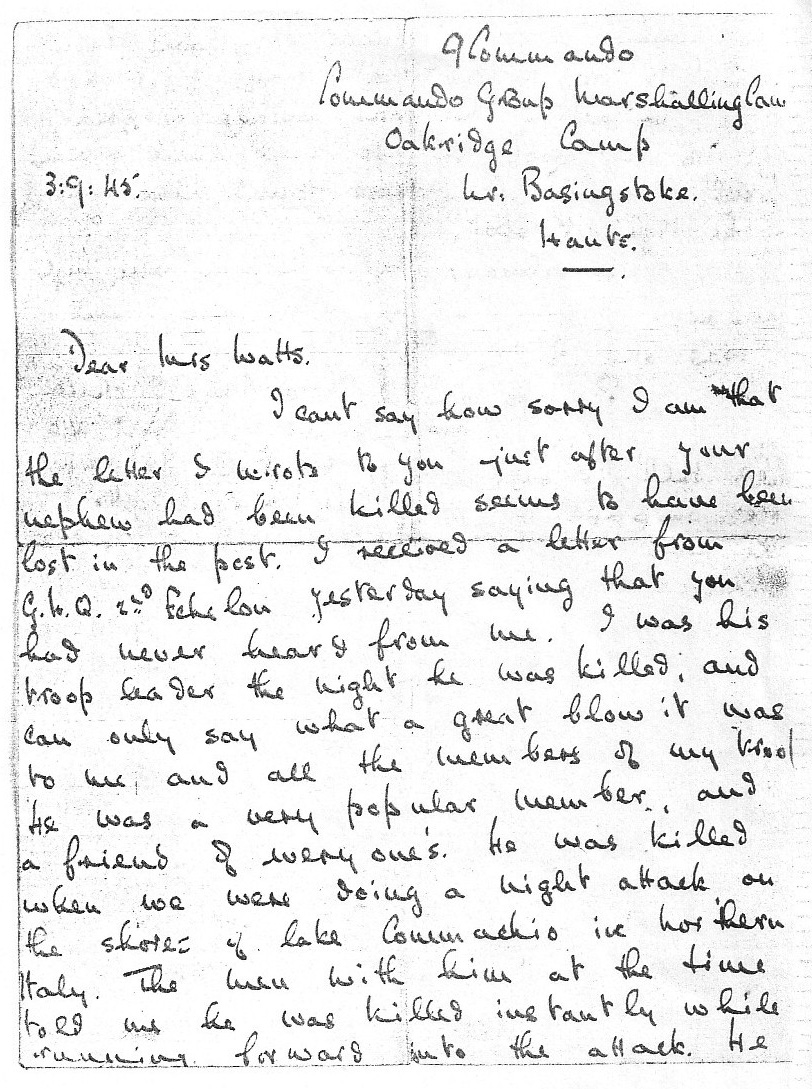 9 Commando
Commando Group Marshalling Cam
Oakridge Camp
3:9:45.
Nr: Basingstoke.
Hants.
Dear Mrs Watts.
I cant say how sorry I am that
the letter I wrote to you just after your
nephew had been killed seems to have been
lost in the post. I received a letter from
G.H.Q. 2nd Echelon yesterday saying that you
had never heard from me. I was his
troop leader the night he was killed, and
can only say what a great blow it was
to me, and all the members of my troop
He was a very popular member, and
a friend of every one's. He was killed
when we were doing a night attack on
the shores of lake Commachio in Northern
Italy. The men with him at the time
told me he was killed instantly while
running forward into the attack. He